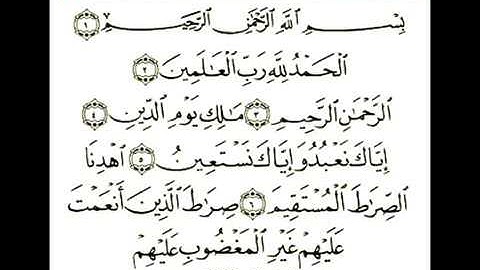 بِسْمِ اللَّهِ الرَّحْمَٰنِ الرَّحِيمِ ١
الْحَمْدُ لِلَّهِ رَبِّ الْعَالَمِينَ ٢
الرَّحْمَٰنِ الرَّحِيمِ ٣ مَلِكِ يَوْمِ الدِّينِ ٤
إِيَّاكَ نَعْبُدُ وَإِيَّاكَ نَسْتَعِينُ ٥ اهْدِنَا
الصِّرَاطَ الْمُسْتَقِيمَ ٦ صِرَاطَ الَّذِينَ أَنْعَمْتَ
عَلَيْهِمْ غَيْرِ الْمَغْضُوبِ عَلَيْهِمْ